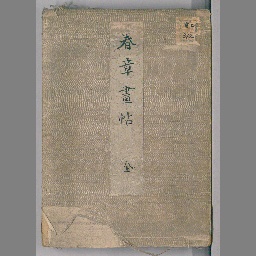 春章畫帖 全